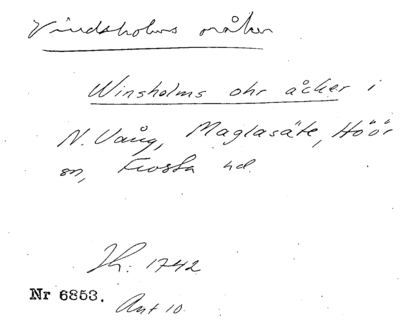 Vindsholms oråker
Winsholms ohr åcker i
N. Vång, Maglasäte, Höör
sn, Frosta hd.
Jh: 1742
Nr 6853.
Akt 10